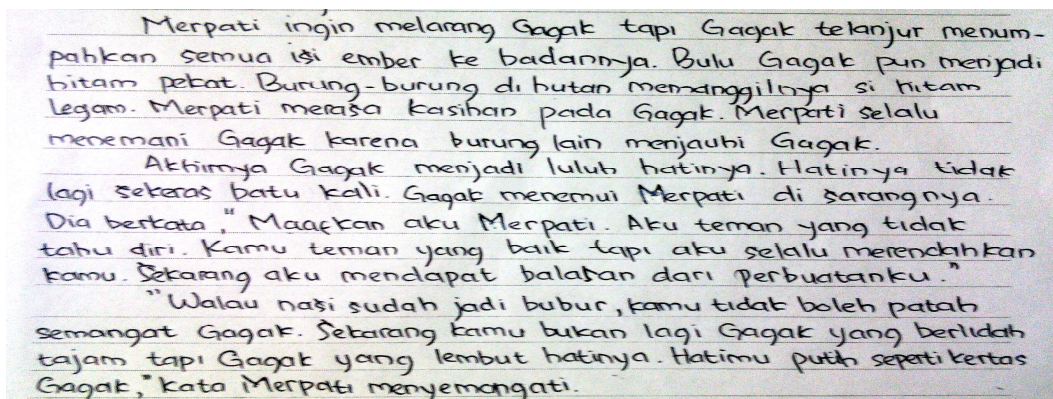 Merpati ingin melarang Gagak tapi Gagak telanjur menum-
pahkan semua isi ember ke badannya. Bulu Gagak pun menjadi
hitam pekat. Burung-burung di hutan memanggilnya si hitam
legam. Merpati merasa kasihan pada Gagak. Merpati selalu
menemani Gagak karena burung lain menjauhi Gagak.
Akhirnya Gagak menjadi luluh hatinya. Hatinya tidak
lagi sekeras batu kali. Gagak menemui Merpati di sarangnya.
Dia berkata, "Maafkan aku Merpati. Aku teman yang tidak
tahu diri. Kamu teman yang baik tapi aku selalu merendahkan
kamu. Sekarang aku mendapat balasan dari perbuatanku."
"Walau nasi sudah jadi bubur, kamu tidak boleh patah
semangat Gagak. Sekarang kamu bukan lagi Gagak yang berlidah
tajam tapi Gagak yang lembut hatinya. Hatimu putih seperti kertas
Gagak," kata Merpati menyemangati.